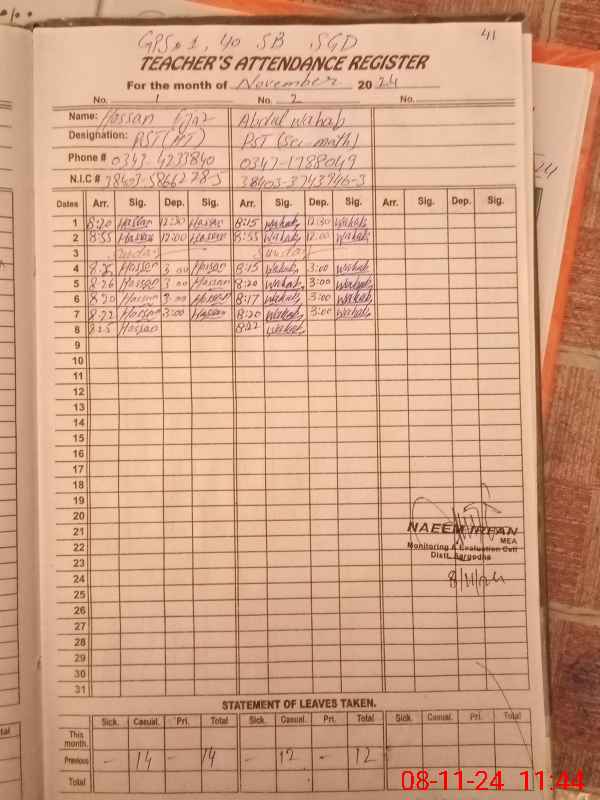 41
GPS # 1, 40 SB SGD
TEACHER'S ATTENDANCE REGISTER
For the month of November 2024
No. 1 No. 2 No.
Name: Hassan Ejaz Abdul Wahab
Designation: PST (HT) PST (Sci-math)
Phone # 0347-4233840 0347-1788049
N.I.C # 38403-5866228-5 38403-3743946-3
Dates Arr. Sig. Dep. Sig. Arr. Sig. Dep. Sig. Arr. Sig. Dep. Sig.
1 8:20 Hassan 12:30 Hassan 8:15 Wahab 12:30 Wahab
2 8:55 Hassan 12:00 Hassan 8:55 Wahab 12:00 Wahab
3 Sunday Sunday
4 Hassan 3:00 Hassan 8:15 Wahab 3:00 Wahab
5 8:26 Hassan 3:00 Hassan 8:20 Wahab 3:00 Wahab
6 8:20 Hassan 3:00 Hassan 8:17 Wahab 3:00 Wahab
7 8:22 Hassan 3:00 Hassan 8:20 Wahab 3:00 Wahab
8 8:25 Hassan 8:22 Wahab
9
10
11
12
13
14
15
16
17
18
19
20
21
22
23
24
25
26
27
28
29
30
31
NAEEM IRFAN
MEA
Monitoring & Evaluation Cell
Distt. Sargodha
8/11/24
STATEMENT OF LEAVES TAKEN.
Sick. Casual. Pri. Total Sick. Casual. Pri. Total Sick. Casual. Pri. Total
This month.
Previous - 14 - 14 - 12 - 12
Total
08-11-24 11:44